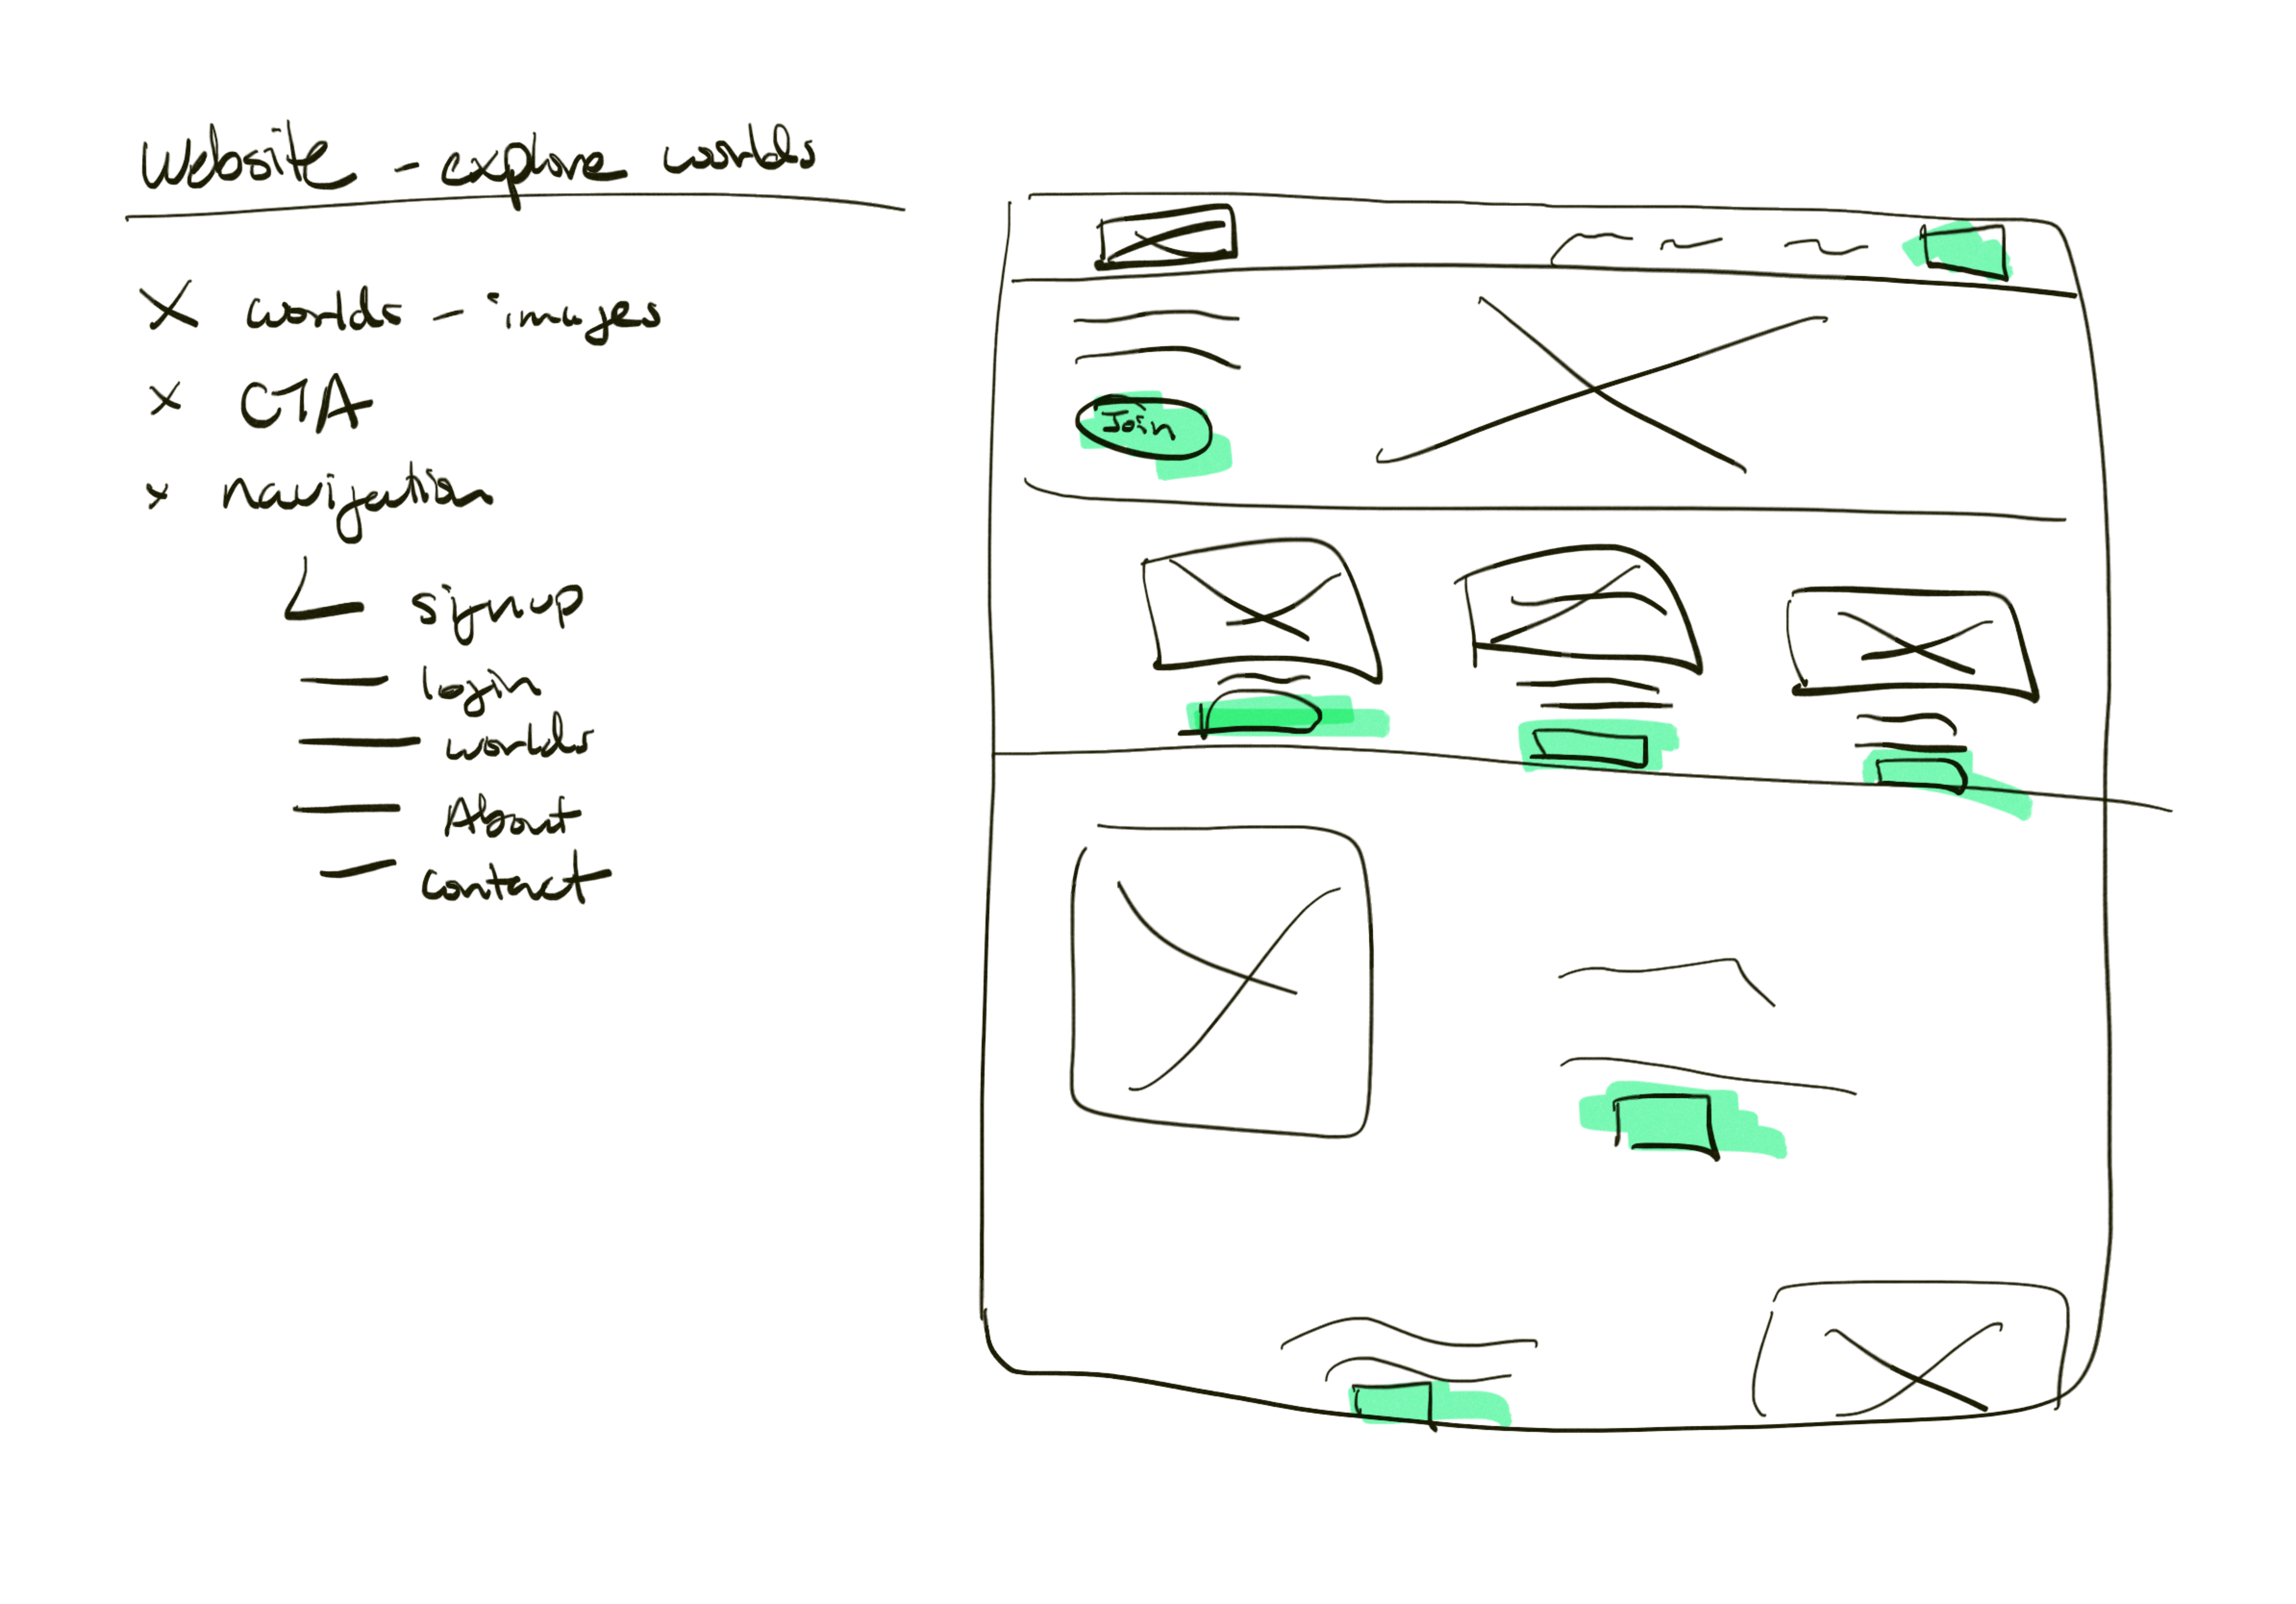 website - explore worlds
x worlds - images
x CTA
x navigation
signup
- login
- worlds
- About
- contact
Join